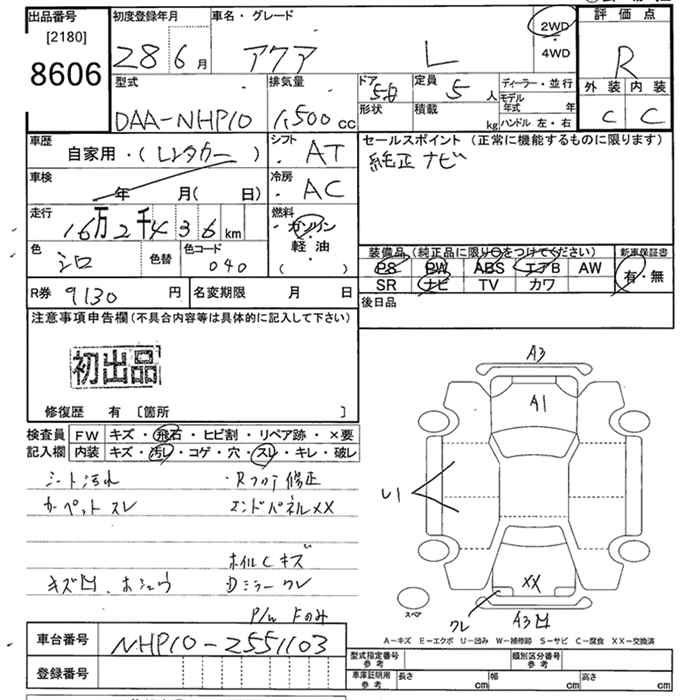 出品番号 初度登録年月 車名・グレード 2WD 評価点
[2180] 28 6月 アクア L ・4WD R
8606 型式 排気量 ドア 定員 ディーラー・並行 外装 内装
DAA-NHP10 1,500cc 5D 5人 モデル年式 年 C C
形状 積載 kg ハンドル 左・右
車歴 自家用・(レンタカー) シフト ・AT セールスポイント (正常に機能するものに限ります)
純正ナビ
車検 年 月(日) 冷房 ・AC
走行 16万2千436km 燃料 ガソリン・軽油・( )
色 シロ 色替 色コード 040
装備品(純正品に限り○をつけてください) 新車保証書
PS PW ABS エアB AW 有・無
SR ナビ TV カワ
R券 9130円 名変期限 月 日 後日品
注意事項申告欄(不具合内容等は具体的に記入して下さい)
初出品
修復歴 有 [箇所 ]
検査員 FW キズ・飛石・ヒビ割・リペア跡・×要
記入欄 内装 キズ・汚レ・コゲ・穴・スレ・キレ・破レ
シート汚れ ・Rフロア修正
カーペットスレ エンドパネルXX
ホイルCキズ
キズ凹、ホシュウ Dミラーワレ
P/W Fのみ
A3
A1
U1
XX
ワレ A3凹
スペア
A-キズ E-エクボ U-凹み W-補修跡 S-サビ C-腐食 XX-交換済
車台番号 NHP10-2551103
登録番号
型式指定番号 参考 類別区分番号 参考
車庫証明用 参考 長さ cm 幅 cm 高さ cm